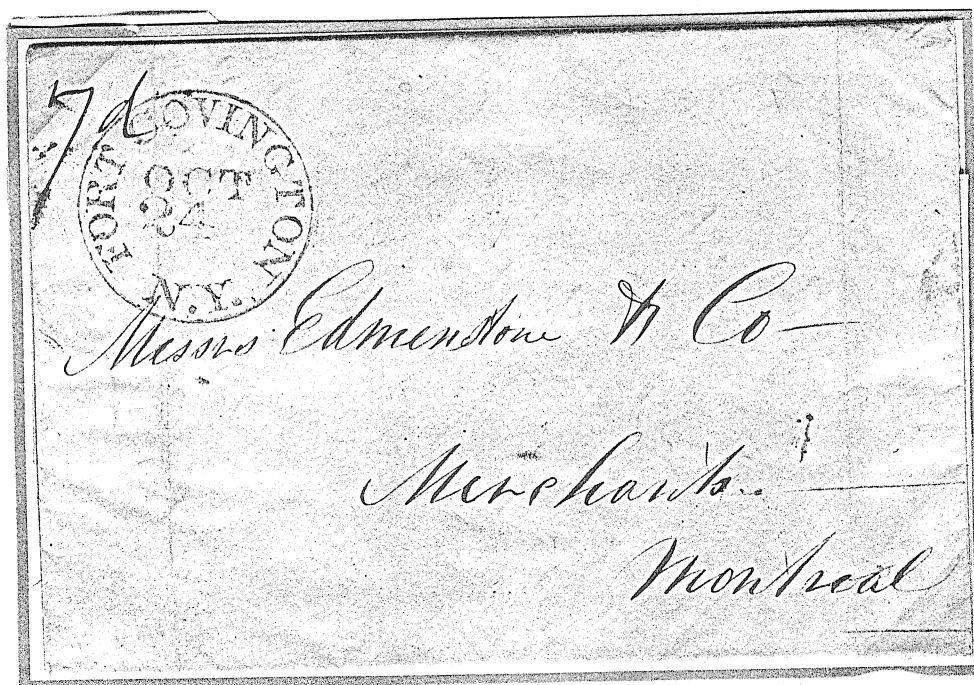 7d
FORT COVINGTON
OCT
24
N.Y.
Messrs Edmonstone & Co
Merchants
Montreal